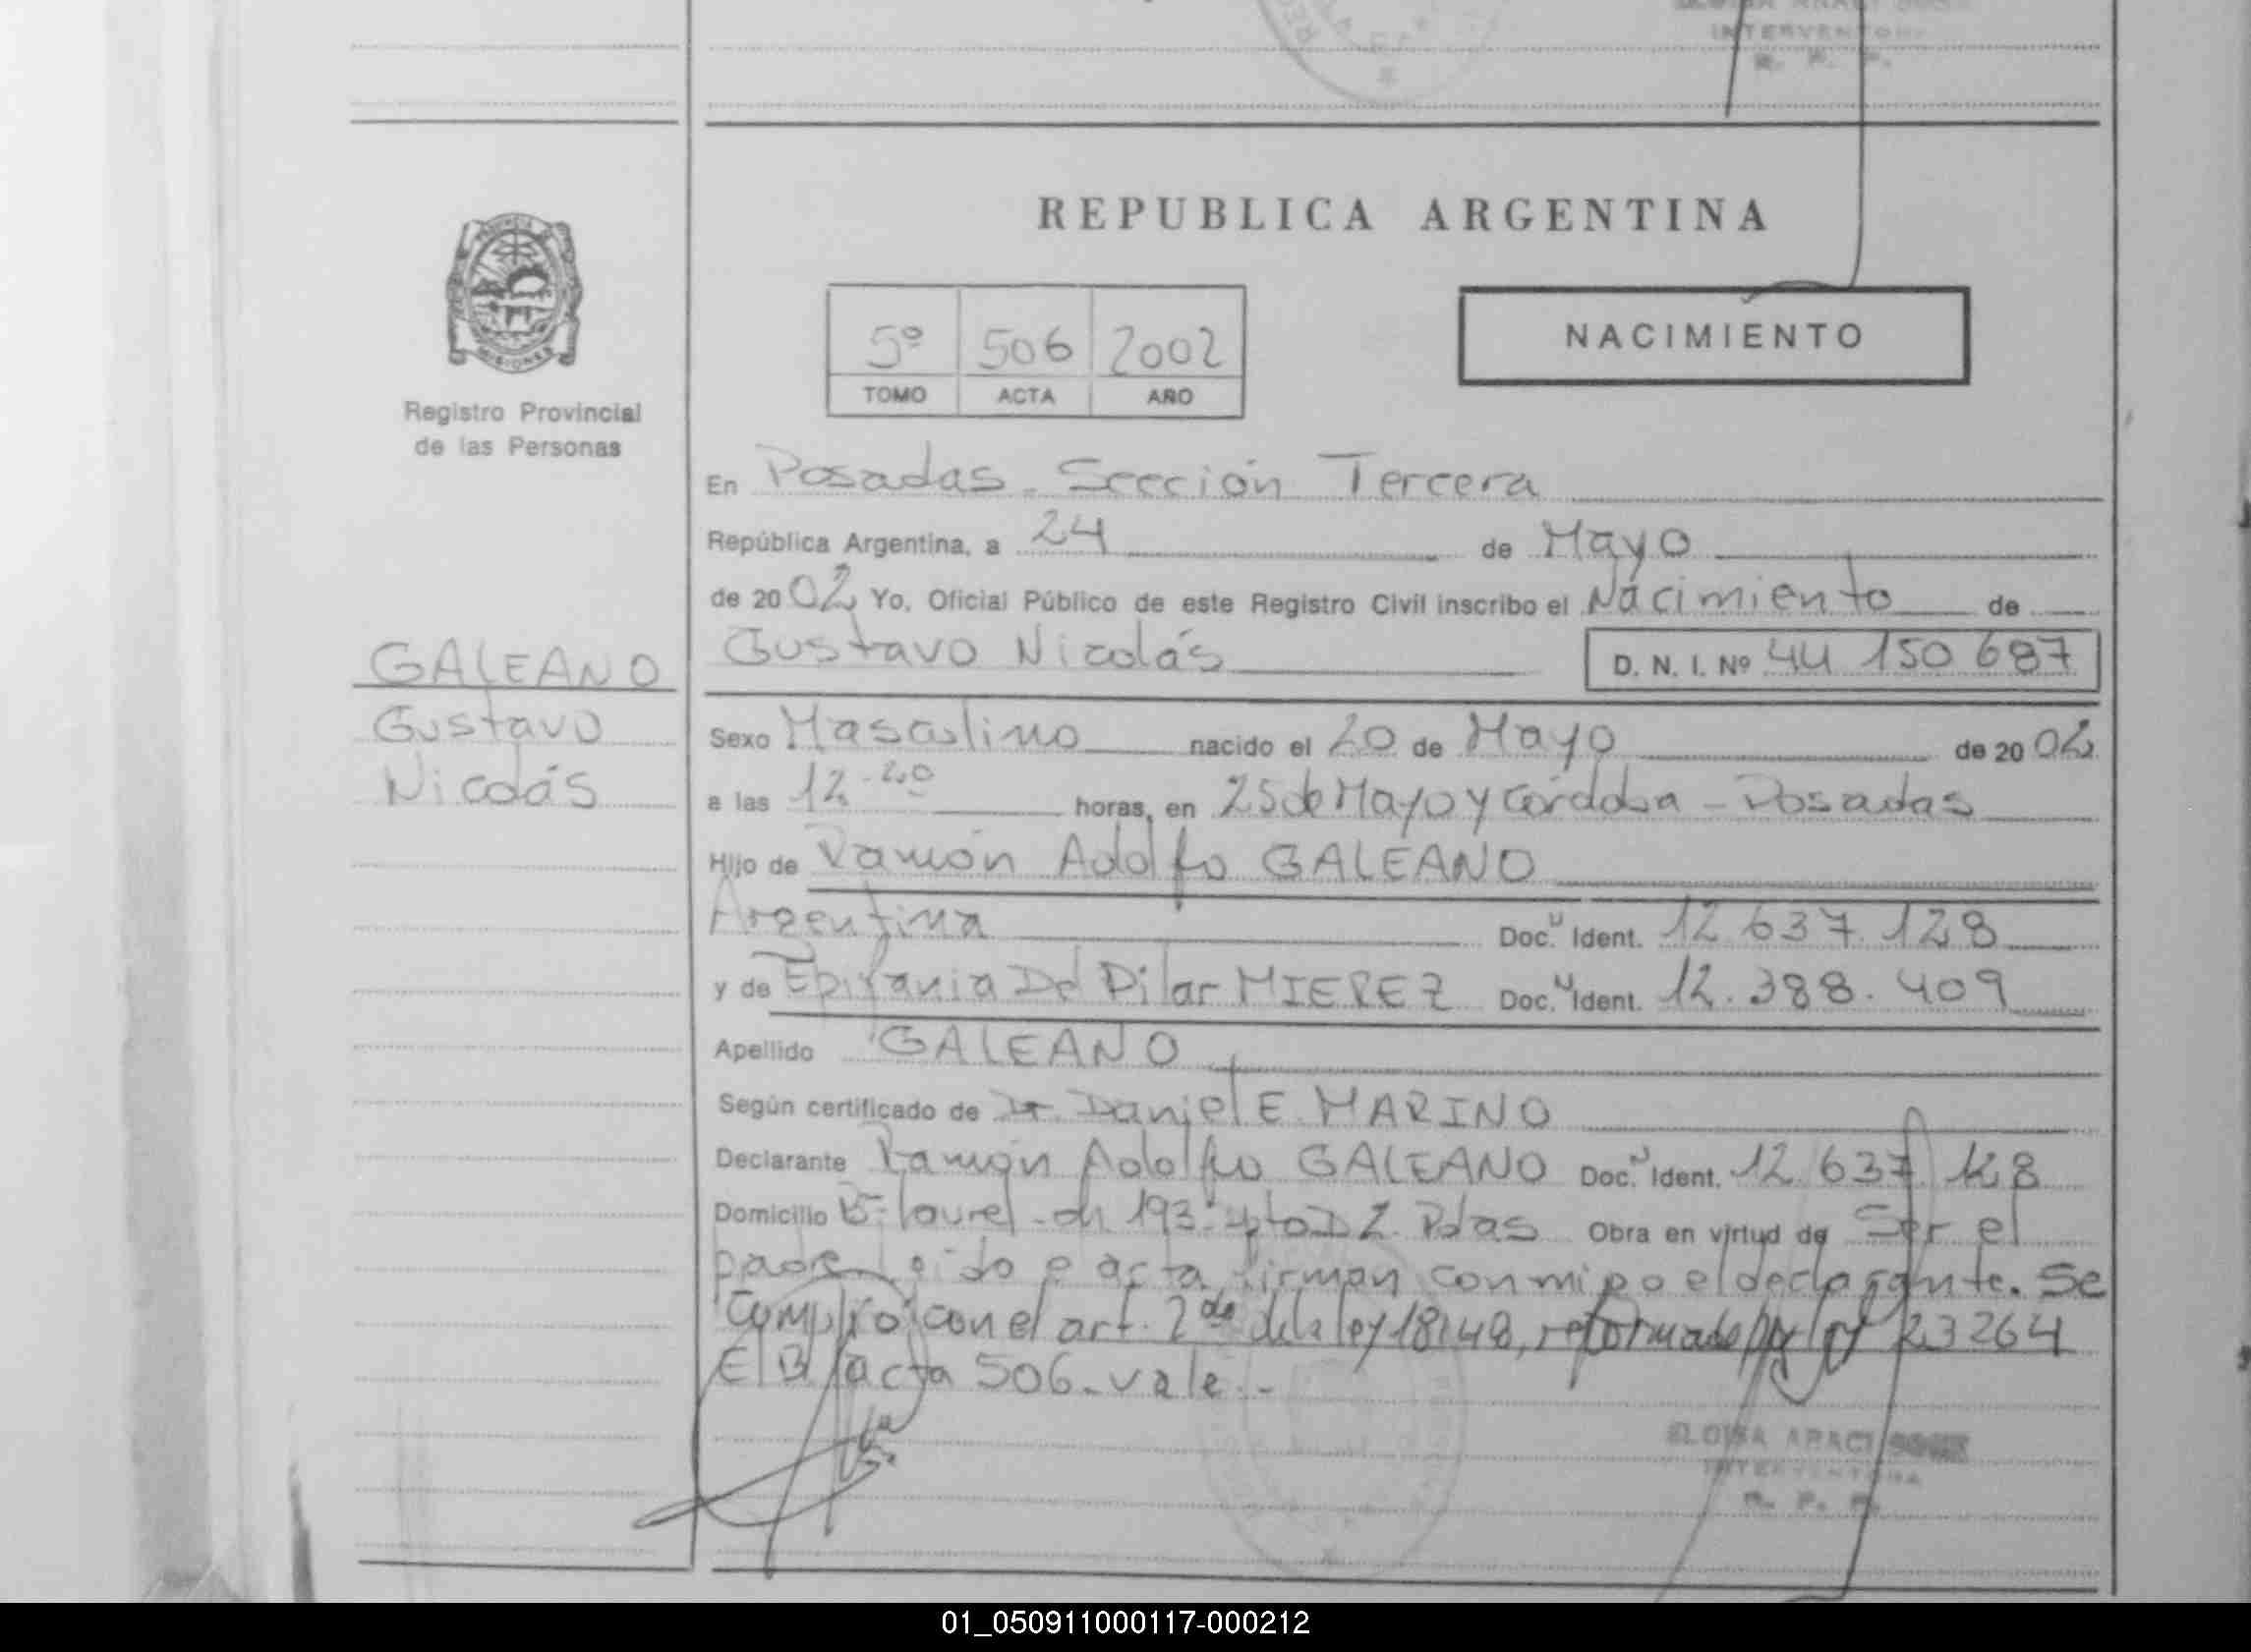 INTERVENTORA
R. P. P.
REPUBLICA ARGENTINA
5º 506 2002
TOMO ACTA AÑO
NACIMIENTO
PROVINCIA DE
MISIONES
Registro Provincial
de las Personas
En Posadas - Sección Tercera
República Argentina, a 24 de Mayo
de 2002 Yo, Oficial Público de este Registro Civil inscribo el Nacimiento de
GALEANO
Gustavo
Nicolás
Gustavo Nicolás D. N. I. Nº 44 150 687
Sexo Masculino nacido el 20 de Mayo de 2002
a las 12-20 horas, en 25 de Mayo y Córdoba - Posadas
Hijo de Ramón Adolfo GALEANO
Argentina Doc. Ident. 12 637.128
y de Epifania Del Pilar MIEREZ Doc. Ident. 12.388.409
Apellido GALEANO
Según certificado de Dr. Daniel E. MARINO
Declarante Ramón Adolfo GALEANO Doc. Ident. 12 637 128
Domicilio Bº laurel - ch 193 Pdas Obra en virtud de Ser el
padre Leido e acta firman conmigo el declarante. Se
Cumplió con el art. 2do de la ley 18248, reformado por ley 23264
acta 506 - vale.-
ELOISA ARACI
INTERVENTORA
R. P. P.
01_050911000117-000212